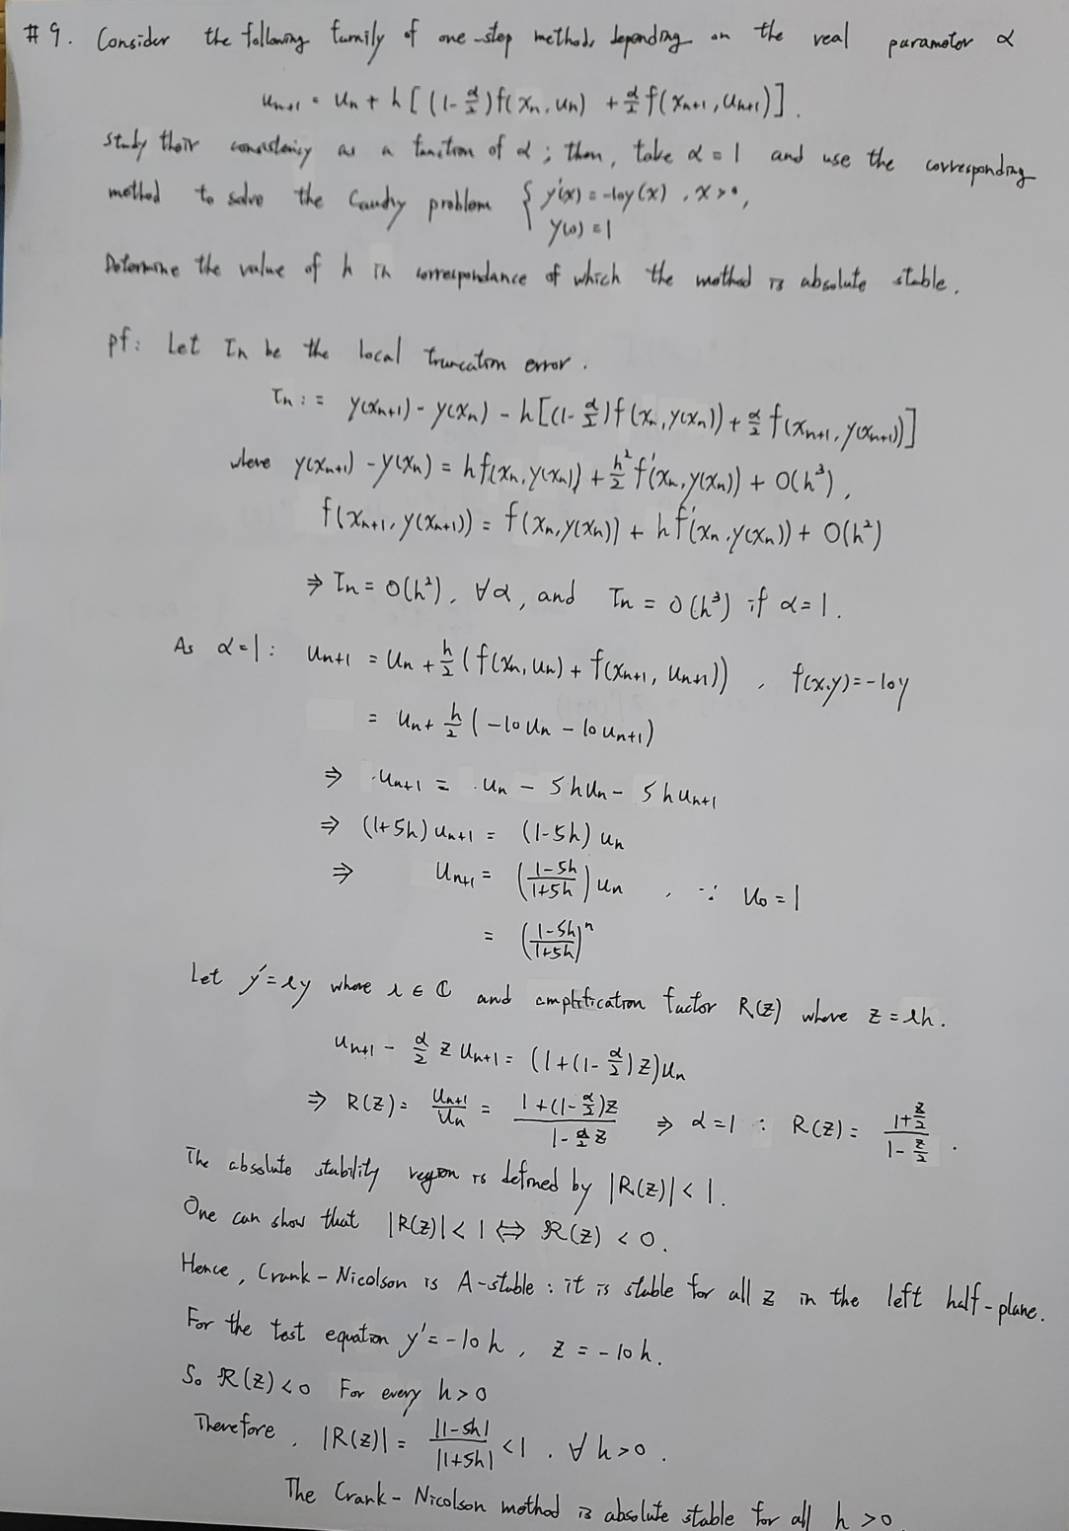 #9. Consider the following family of one-step methods depending on the real parameter α
u_{n+1} = u_n + h[(1-α/2)f(x_n, u_n) + α/2 f(x_{n+1}, u_{n+1})].
Study their consistency as a function of α; then, take α = 1 and use the corresponding
method to solve the Cauchy problem { y'(x) = -10y(x), x > 0,
y(0) = 1
Determine the value of h in correspondance of which the method is absolute stable.
pf: Let τ_n be the local truncation error.
τ_n := y(x_{n+1}) - y(x_n) - h[(1-α/2)f(x_n, y(x_n)) + α/2 f(x_{n+1}, y(x_{n+1}))]
where y(x_{n+1}) - y(x_n) = hf(x_n, y(x_n)) + h²/2 f'(x_n, y(x_n)) + O(h³),
f(x_{n+1}, y(x_{n+1})) = f(x_n, y(x_n)) + hf'(x_n, y(x_n)) + O(h²)
⇒ τ_n = O(h²), ∀α, and τ_n = O(h³) if α = 1.
As α = 1: u_{n+1} = u_n + h/2 (f(x_n, u_n) + f(x_{n+1}, u_{n+1})), f(x,y) = -10y
= u_n + h/2 (-10u_n - 10u_{n+1})
⇒ u_{n+1} = u_n - 5hu_n - 5hu_{n+1}
⇒ (1+5h)u_{n+1} = (1-5h)u_n
⇒ u_{n+1} = ((1-5h)/(1+5h))u_n, ∵ u_0 = 1
= ((1-5h)/(1+5h))^n
Let y' = λy where λ ∈ ℂ and amplification factor R(z) where z = λh.
u_{n+1} - α/2 z u_{n+1} = (1+(1-α/2)z)u_n
⇒ R(z) = u_{n+1}/u_n = (1+(1-α/2)z)/(1-α/2 z) ⇒ α = 1: R(z) = (1+z/2)/(1-z/2).
The absolute stability region is defined by |R(z)| < 1.
One can show that |R(z)| < 1 ⇔ ℜ(z) < 0.
Hence, Crank-Nicolson is A-stable: it is stable for all z in the left half-plane.
For the test equation y' = -10h, z = -10h.
So ℜ(z) < 0 For every h > 0
Therefore, |R(z)| = |1-5h|/|1+5h| < 1. ∀ h > 0.
The Crank-Nicolson method is absolute stable for all h > 0.